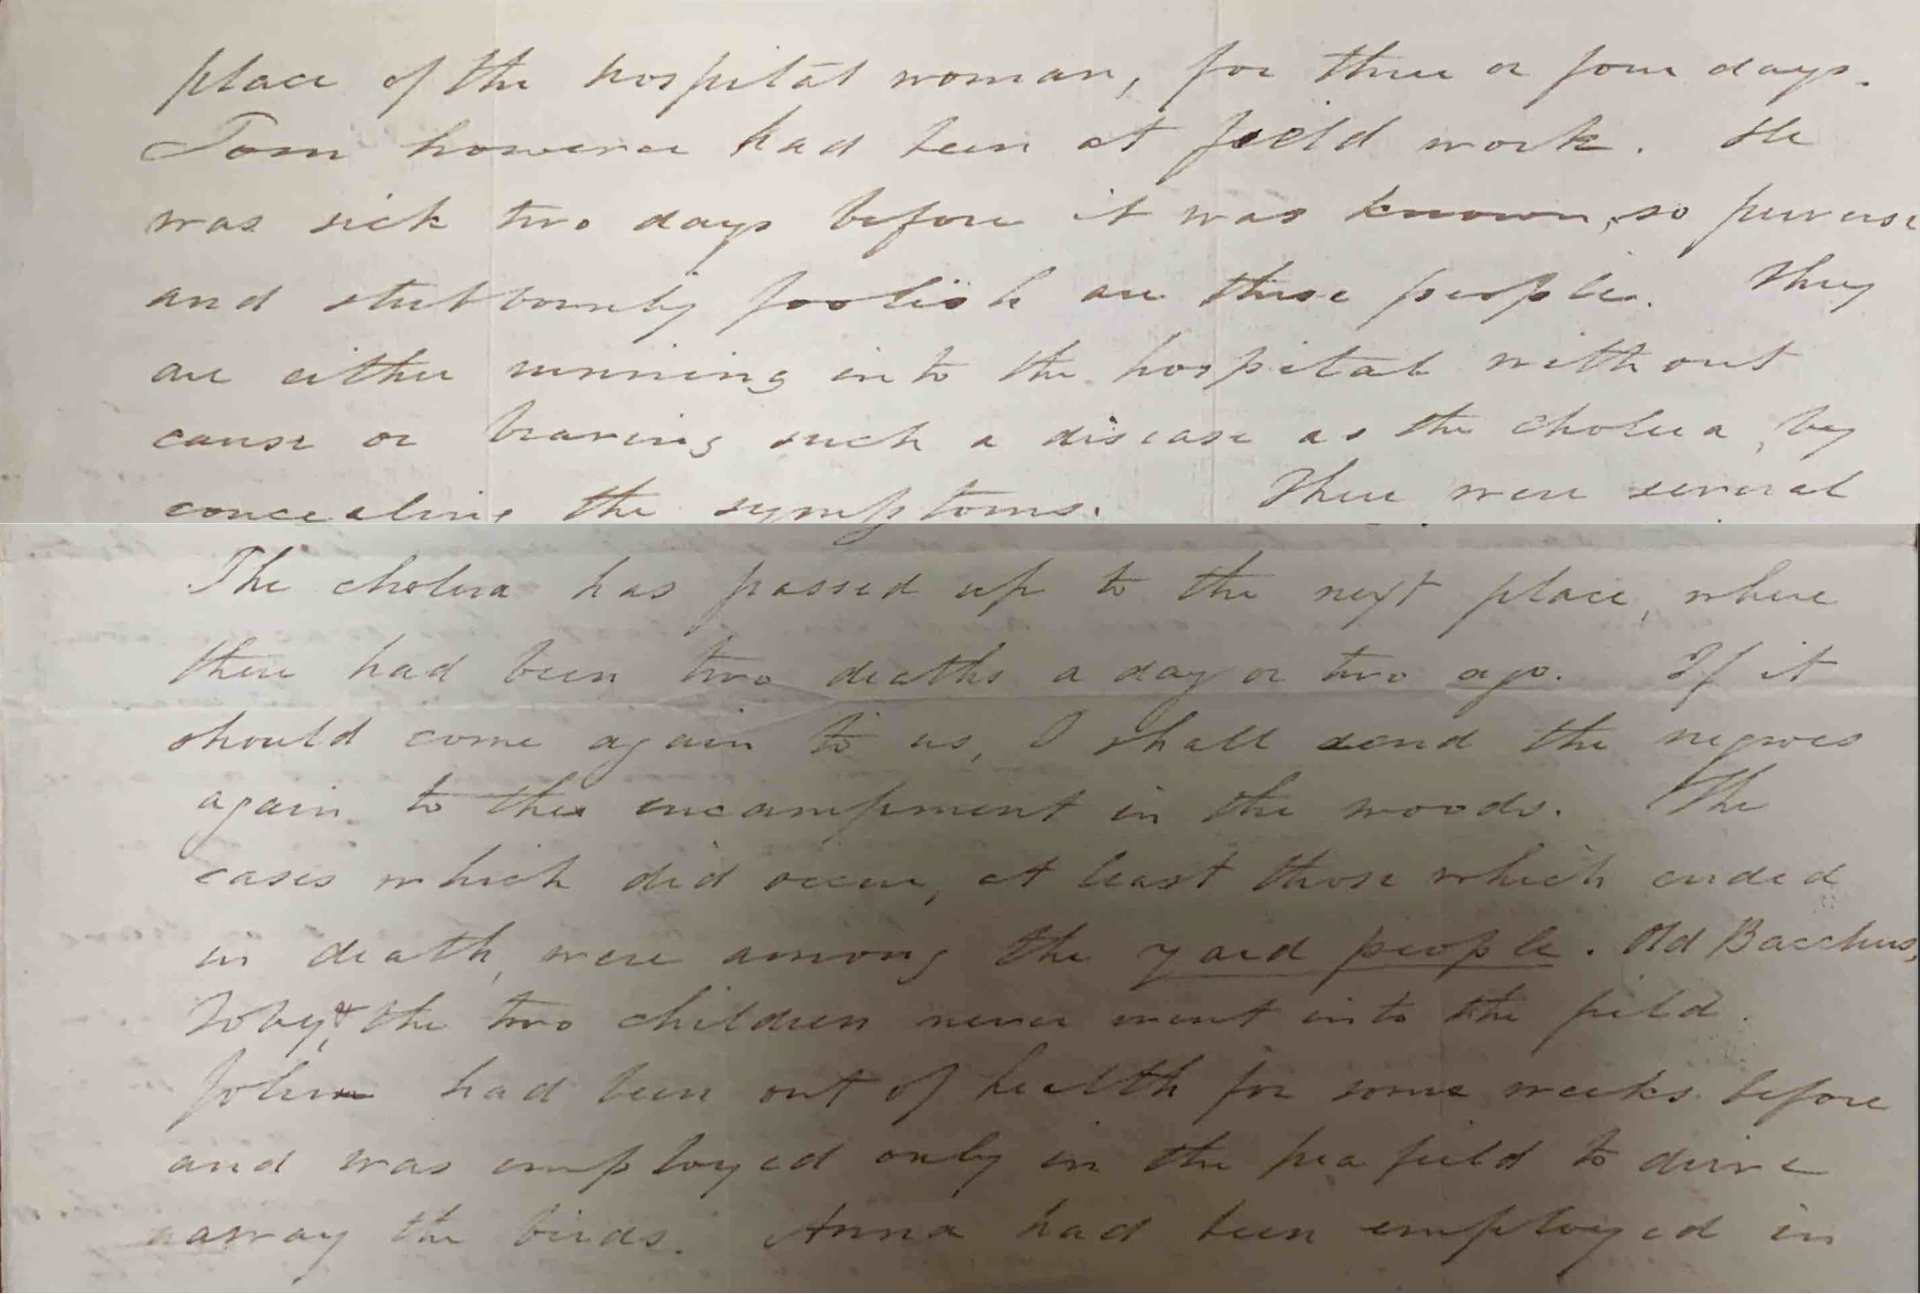 place of the hospital woman, for three or four days.
Tom however had been at field work. He
was sick two days before it was known, so perverse
and stubbornly foolish are these people. They
are either running into the hospital without
cause or braving such a disease as the cholera, by
concealing the symptoms. There were several
The cholera has passed up to the next place, where
there had been two deaths a day or two ago. If it
should come again to us, I shall send the negroes
again to the encampment in the woods. The
cases which did occur, at least those which ended
in death, were among the yard people. Old Bacchus,
Toby, & the two children never went into the field.
John had been out of health for some weeks before
and was employed only in the pea field to drive
away the birds. Anna had been employed in